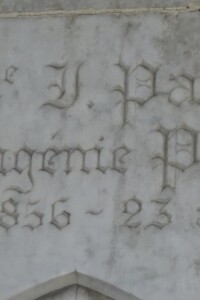 e J. Pa
ugénie P
856 - 23